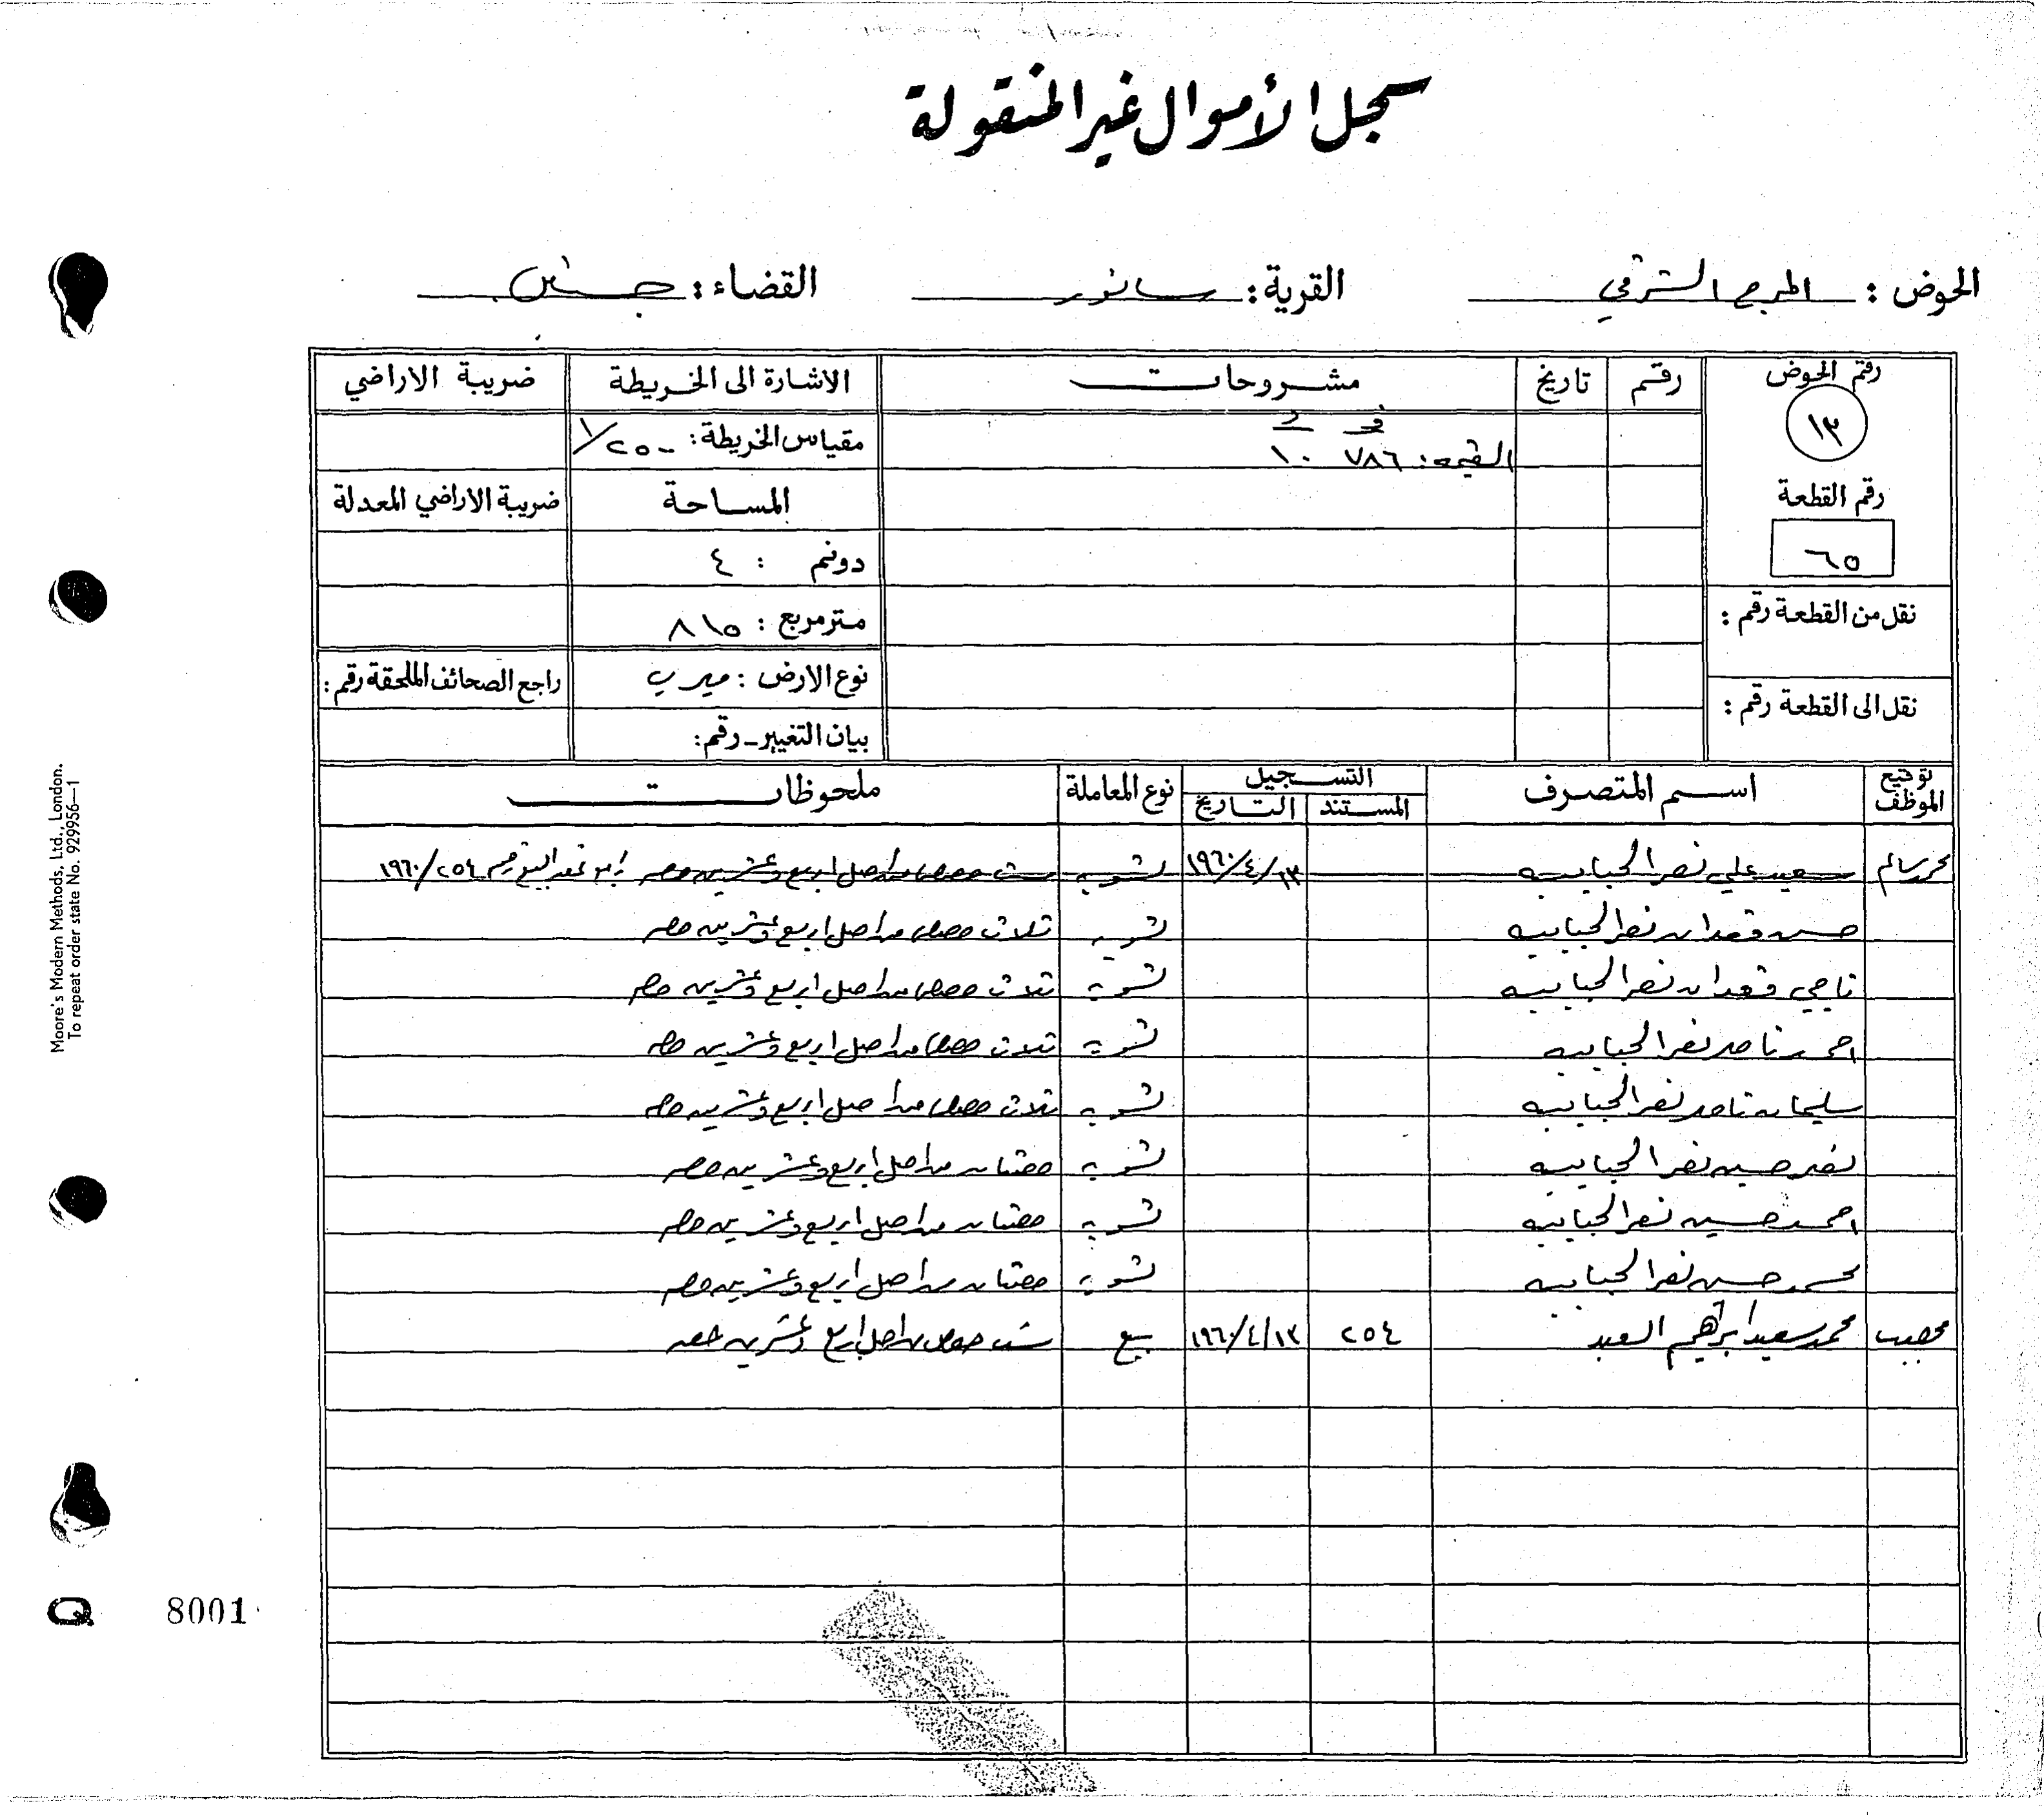 سجل الأموال غير المنقولة
الحوض : المرج الشرقي القرية : سانور القضاء : جنين
رقم الحوض رقم تاريخ مشروحات الاشارة الى الخريطة ضريبة الاراضي
١٣
القيمه : ٧٨٦ ١٠ مقياس الخريطة : ١/٢٥٠٠
رقم القطعة المساحة ضريبة الاراضي المعدلة
٦٥ دونم : ٤
نقل من القطعة رقم : متر مربع : ٨١٥
نوع الارض : ميري راجع الصحائف الملحقة رقم :
نقل الى القطعة رقم : بيان التغيير - رقم :
توقيع الموظف اسم المتصرف التسجيل نوع المعاملة ملحوظات
المستند التاريخ
محمد سالم سعيد علي نصر الحبايبه ١٩٦٠/٤/١٣ تسويه ست حصص من اصل اربع وعشرين حصه رقم ١٩٦٠/٢٥٤
حسن قعدان نصر الحبايبه تسويه ثلاث حصص من اصل اربع وعشرين حصه
ناجي قعدان نصر الحبايبه تسويه ثلاث حصص من اصل اربع وعشرين حصه
احمد ناصر نصر الحبايبه تسويه ثلاث حصص من اصل اربع وعشرين حصه
سليمان ناصر نصر الحبايبه تسويه ثلاث حصص من اصل اربع وعشرين حصه
نصر حسين نصر الحبايبه تسويه حصتان من اصل اربع وعشرين حصه
احمد حسين نصر الحبايبه تسويه حصتان من اصل اربع وعشرين حصه
محمد حسين نصر الحبايبه تسويه حصتان من اصل اربع وعشرين حصه
محمد سعيد ابراهيم العبد ٢٥٤ ١٩٦٠/٤/١٣ بيع ست حصص من اصل اربع وعشرين حصه
Moore's Modern Methods, Ltd., London.
To repeat order state No. 929956—1
Q 8001